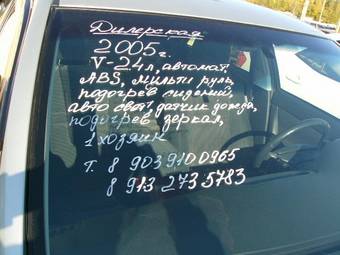 Дилерская
2005г.
V-2.4л, автомат,
ABS, мульти руль,
подогрев сидений,
авто свет, датчик дождя,
подогрев зеркал,
1 хозяин
т. 8 903 910 0965
8 913 273 5783